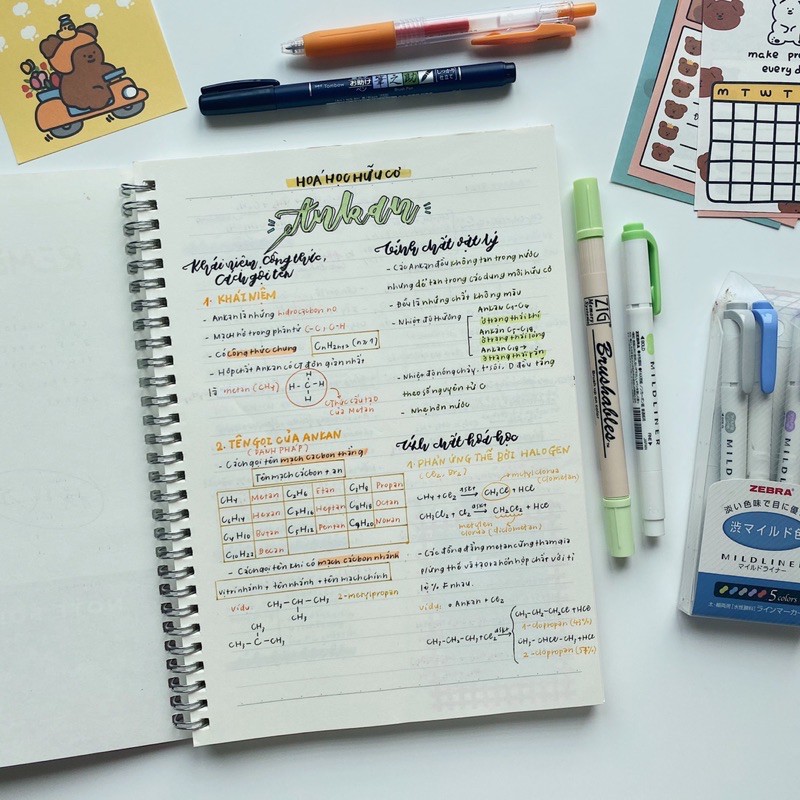 HOÁ HỌC HỮU CƠ
Ankan
Khái niệm, công thức,
Cách gọi tên
1. KHÁI NIỆM
- Ankan là những hidrocacbon no
- Mạch hở trong phân tử C-C, C-H
- Có công thức chung CnH2n+2 (n≥1)
- Hợp chất Ankan có CT đơn giản nhất
là metan (CH4)
H
H-C-H
H
Công thức cấu tạo
của Metan
2. TÊN GỌI CỦA ANKAN
(DANH PHÁP)
- Cách gọi tên mạch cacbon thẳng
Tên mạch cacbon + an
CH4 Metan C2H6 Etan C3H8 Propan
C6H14 Hexan C7H16 Heptan C8H18 Octan
C4H10 Butan C5H12 Pentan C9H20 Nonan
C10H22 Decan
- Cách gọi tên khi có mạch cacbon nhánh
Vị trí nhánh + tên nhánh + tên mạch chính
Ví dụ
CH3-CH-CH3 2-metylpropan
CH3
CH3
CH3-C-CH3
Tính chất vật lý
- Các Ankan đều không tan trong nước
nhưng dễ tan trong các dung môi hữu cơ
- Đều là những chất không màu
- Nhiệt độ thường
Ankan C1-C4
ở trạng thái khí
Ankan C5-C18
ở trạng thái lỏng
ở trạng thái rắn
- Nhiệt độ nóng chảy, t° sôi, D đều tăng
theo số nguyên tử C
- Nhẹ hơn nước
Tính chất hoá học
1. PHẢN ỨNG THẾ BỞI HALOGEN
(Cl2, Br2)
metylclorua
(clometan)
CH4 + Cl2 → CH3Cl + HCl
CH3Cl + Cl2 → CH2Cl2 + HCl
metylen
clorua (diclometan)
- Các đồng đẳng metan cũng tham gia
phản ứng thế và tạo ra hỗn hợp chất với tỉ
lệ % # nhau.
Ví dụ: + Ankan + Cl2
CH3-CH2-CH3 + Cl2
CH3-CH2-CH2Cl + HCl
1-clopropan (43%)
CH3-CHCl-CH3 + HCl
2-clopropan (57%)
Tombow
ZIG
Brushables
MILDLINER
make
every d
M T W T
ZEBRA
渋マイルド色
MILDLINER
マイルドライナー
5 colors